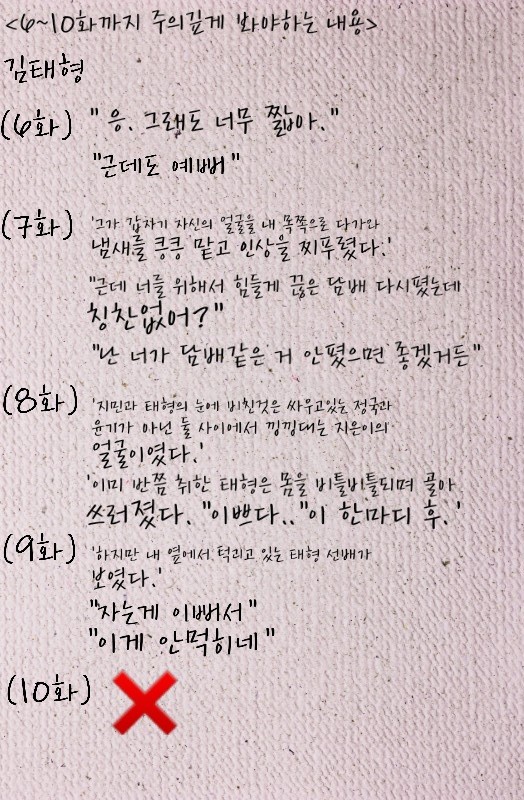 <6~10화까지 주의깊게 봐야하는 내용>
김태형
(6화) "응. 그래도 너무 짧아."
"근데도 예뻐"
(7화) '그가 갑자기 자신의 얼굴을 내 목쪽으로 다가와
냄새를 킁킁 맡고 인상을 찌푸렸다.'
"근데 너를 위해서 힘들게 끊은 담배 다시폈는데
칭찬없어?"
"난 너가 담배같은 거 안폈으면 좋겠거든"
(8화) '지민과 태형의 눈에 비친것은 싸우고있는 정국과
윤기가 아닌 둘 사이에서 낑낑대는 지은이의
얼굴이였다.'
'이미 반쯤 취한 태형은 몸을 비틀비틀되며 골아
쓰러졌다. "이쁘다.." 이 한마디 후.'
(9화) '하지만 내 옆에서 턱괴고 있는 태형 선배가
보였다.'
"자는게 이뻐서"
"이게 안먹히네"
(10화)